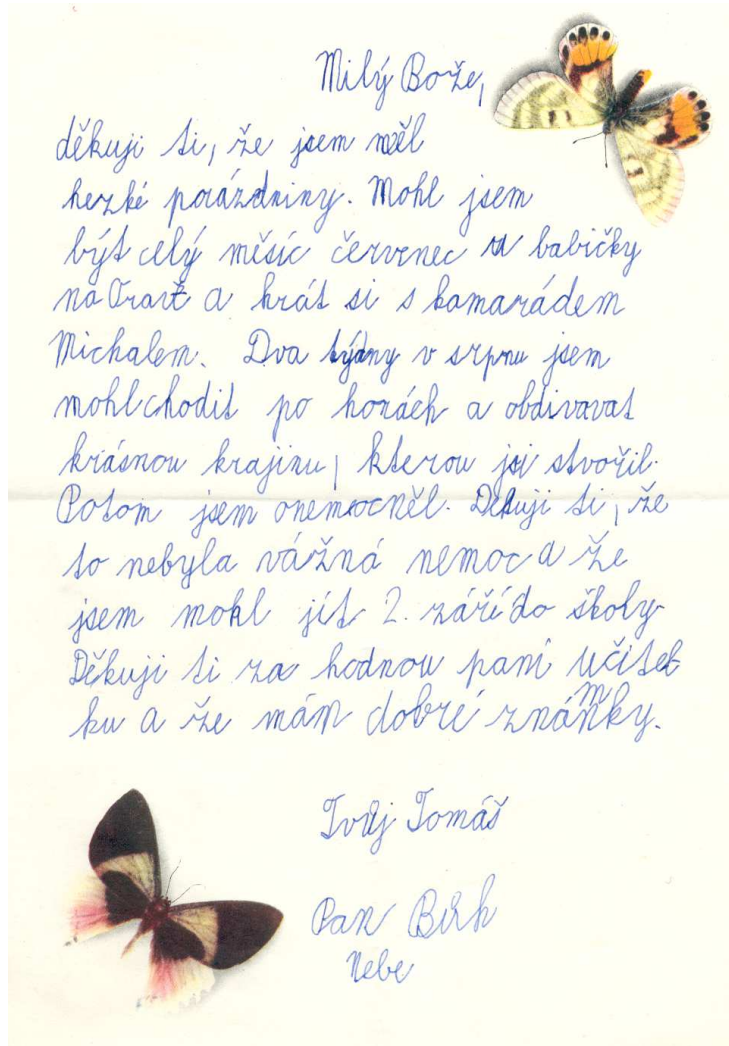 Milý Bože,
děkuji ti, že jsem měl
hezké prázdniny. Mohl jsem
být celý měsíc červenec u babičky
na a hrát si s kamarádem
Michalem. Dva týdny v srpnu jsem
mohl chodit po horách a obdivavat
krásnou krajinu, kterou jsi stvořil.
Potom jsem onemocněl. Děkuji ti, že
to nebyla vážná nemoc a že
jsem mohl jít 2. září do školy
Děkuji ti za hodnou paní učitel-
ku a že mám dobré známky.
Tvůj Tomáš
Pan Bůh
Nebe